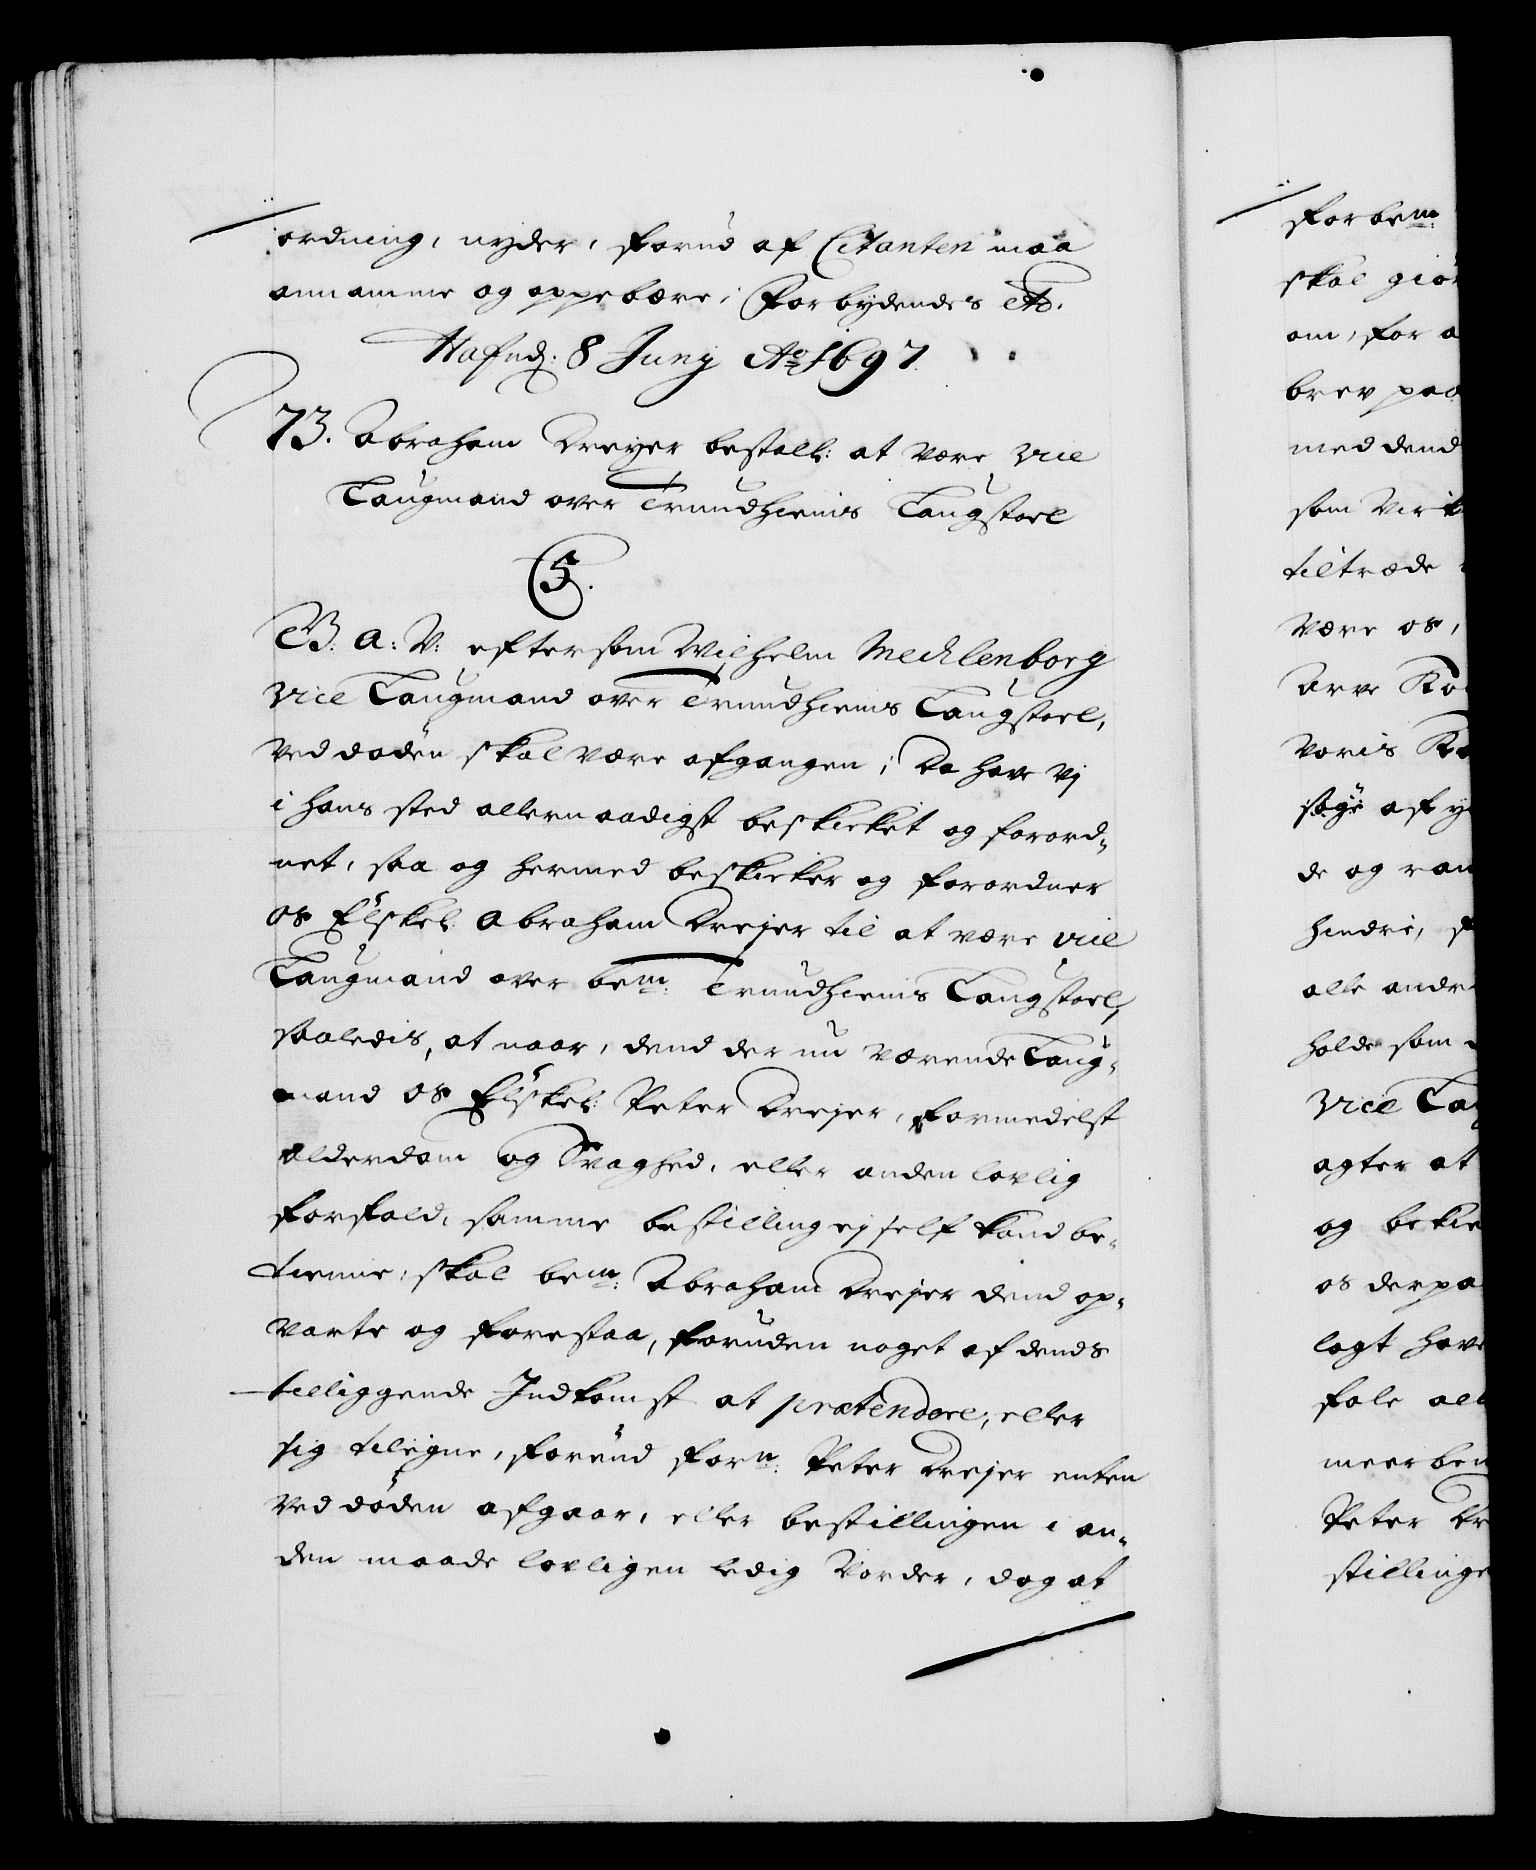 ordning, nyder, forud af Citanten maa
annamme og oppebære; Forbydendes etc.
Hafn: 8 Junij Ao 1697.
73. Abraham Dreyer bestalt: at være Vice
Laugmand over Trundhiems Laugstoel
5.
G. A: V: eftersom Wilhelm Mecklenborg
Vice Laugmand over Trundhiems Laugstoel,
ved døden skal være afgangen; Da have Vj
i hans sted allernaadigst beskicket og forord-
net, saa og hermed beskicker og forordner
os Elskel: Abraham Drejer til at være vice
Laugmand over bem: Trundhiems Laugstoel,
saaledis, at naar, dend der nu værende Laug-
mand os Elskel: Peter Drejer, formedelst
alderdom og Svaghed, eller anden lovlig
forfald, samme bestilling ej self kand be-
tienne, skal bem: Abraham Drejer dend op-
varte og forestaa, foruden noget af dends
tilliggende Indkomst at prætendere, eller
sig tilegne, forend forn: Peter Drejer enten
ved døden afgaar, eller bestillingen i an-
den maade lovligen ledig vorder, dog at
forbem:
skal giør
om, for a
brev paa
med dend
som
tiltræde
være os,
Arve
Voris
søge af
de og
hindre,
alle andr
holde som
Vice La
agter at
og bekie
os derpa
lagt have
fale all
meerbem
Peter Dr
stillinge